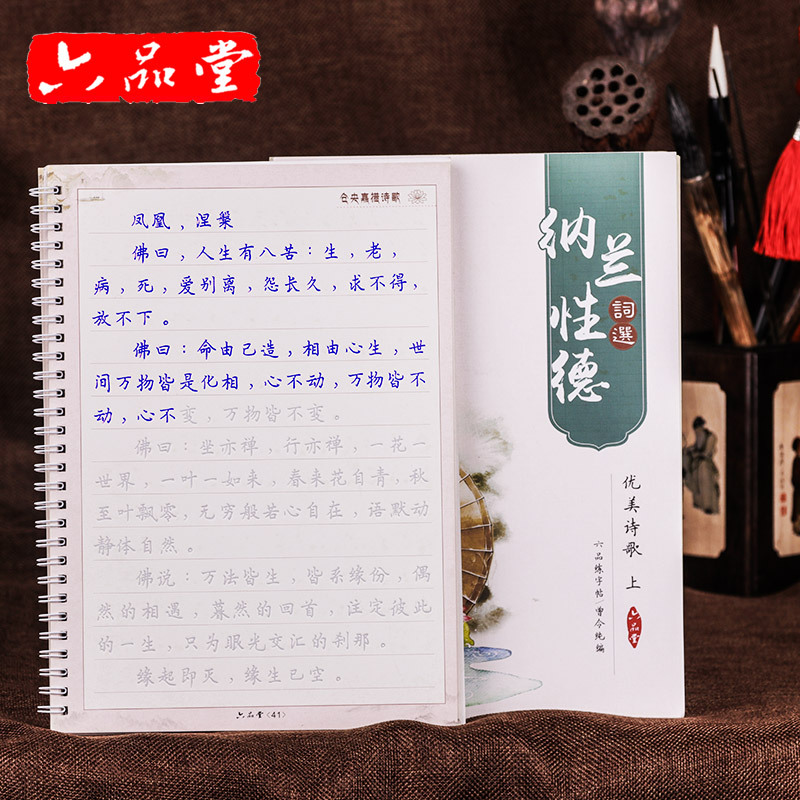 六品堂
仓央嘉措诗歌
凤凰,涅槃
佛曰,人生有八苦:生,老,
病,死,爱别离,怨长久,求不得,
放不下。
佛曰:命由己造,相由心生,世
间万物皆是化相,心不动,万物皆不
动,心不变,万物皆不变。
佛曰:坐亦禅,行亦禅,一花一
世界,一叶一如来,春来花自青,秋
至叶飘零,无穷般若心自在,语默动
静体自然。
佛说:万法皆生,皆系缘份,偶
然的相遇,暮然的回首,注定彼此
的一生,只为眼光交汇的刹那。
缘起即灭,缘生已空。
六品堂〈41〉
纳兰性德
詞選
优美诗歌 上
六品练字帖/曾今纯编
六品堂